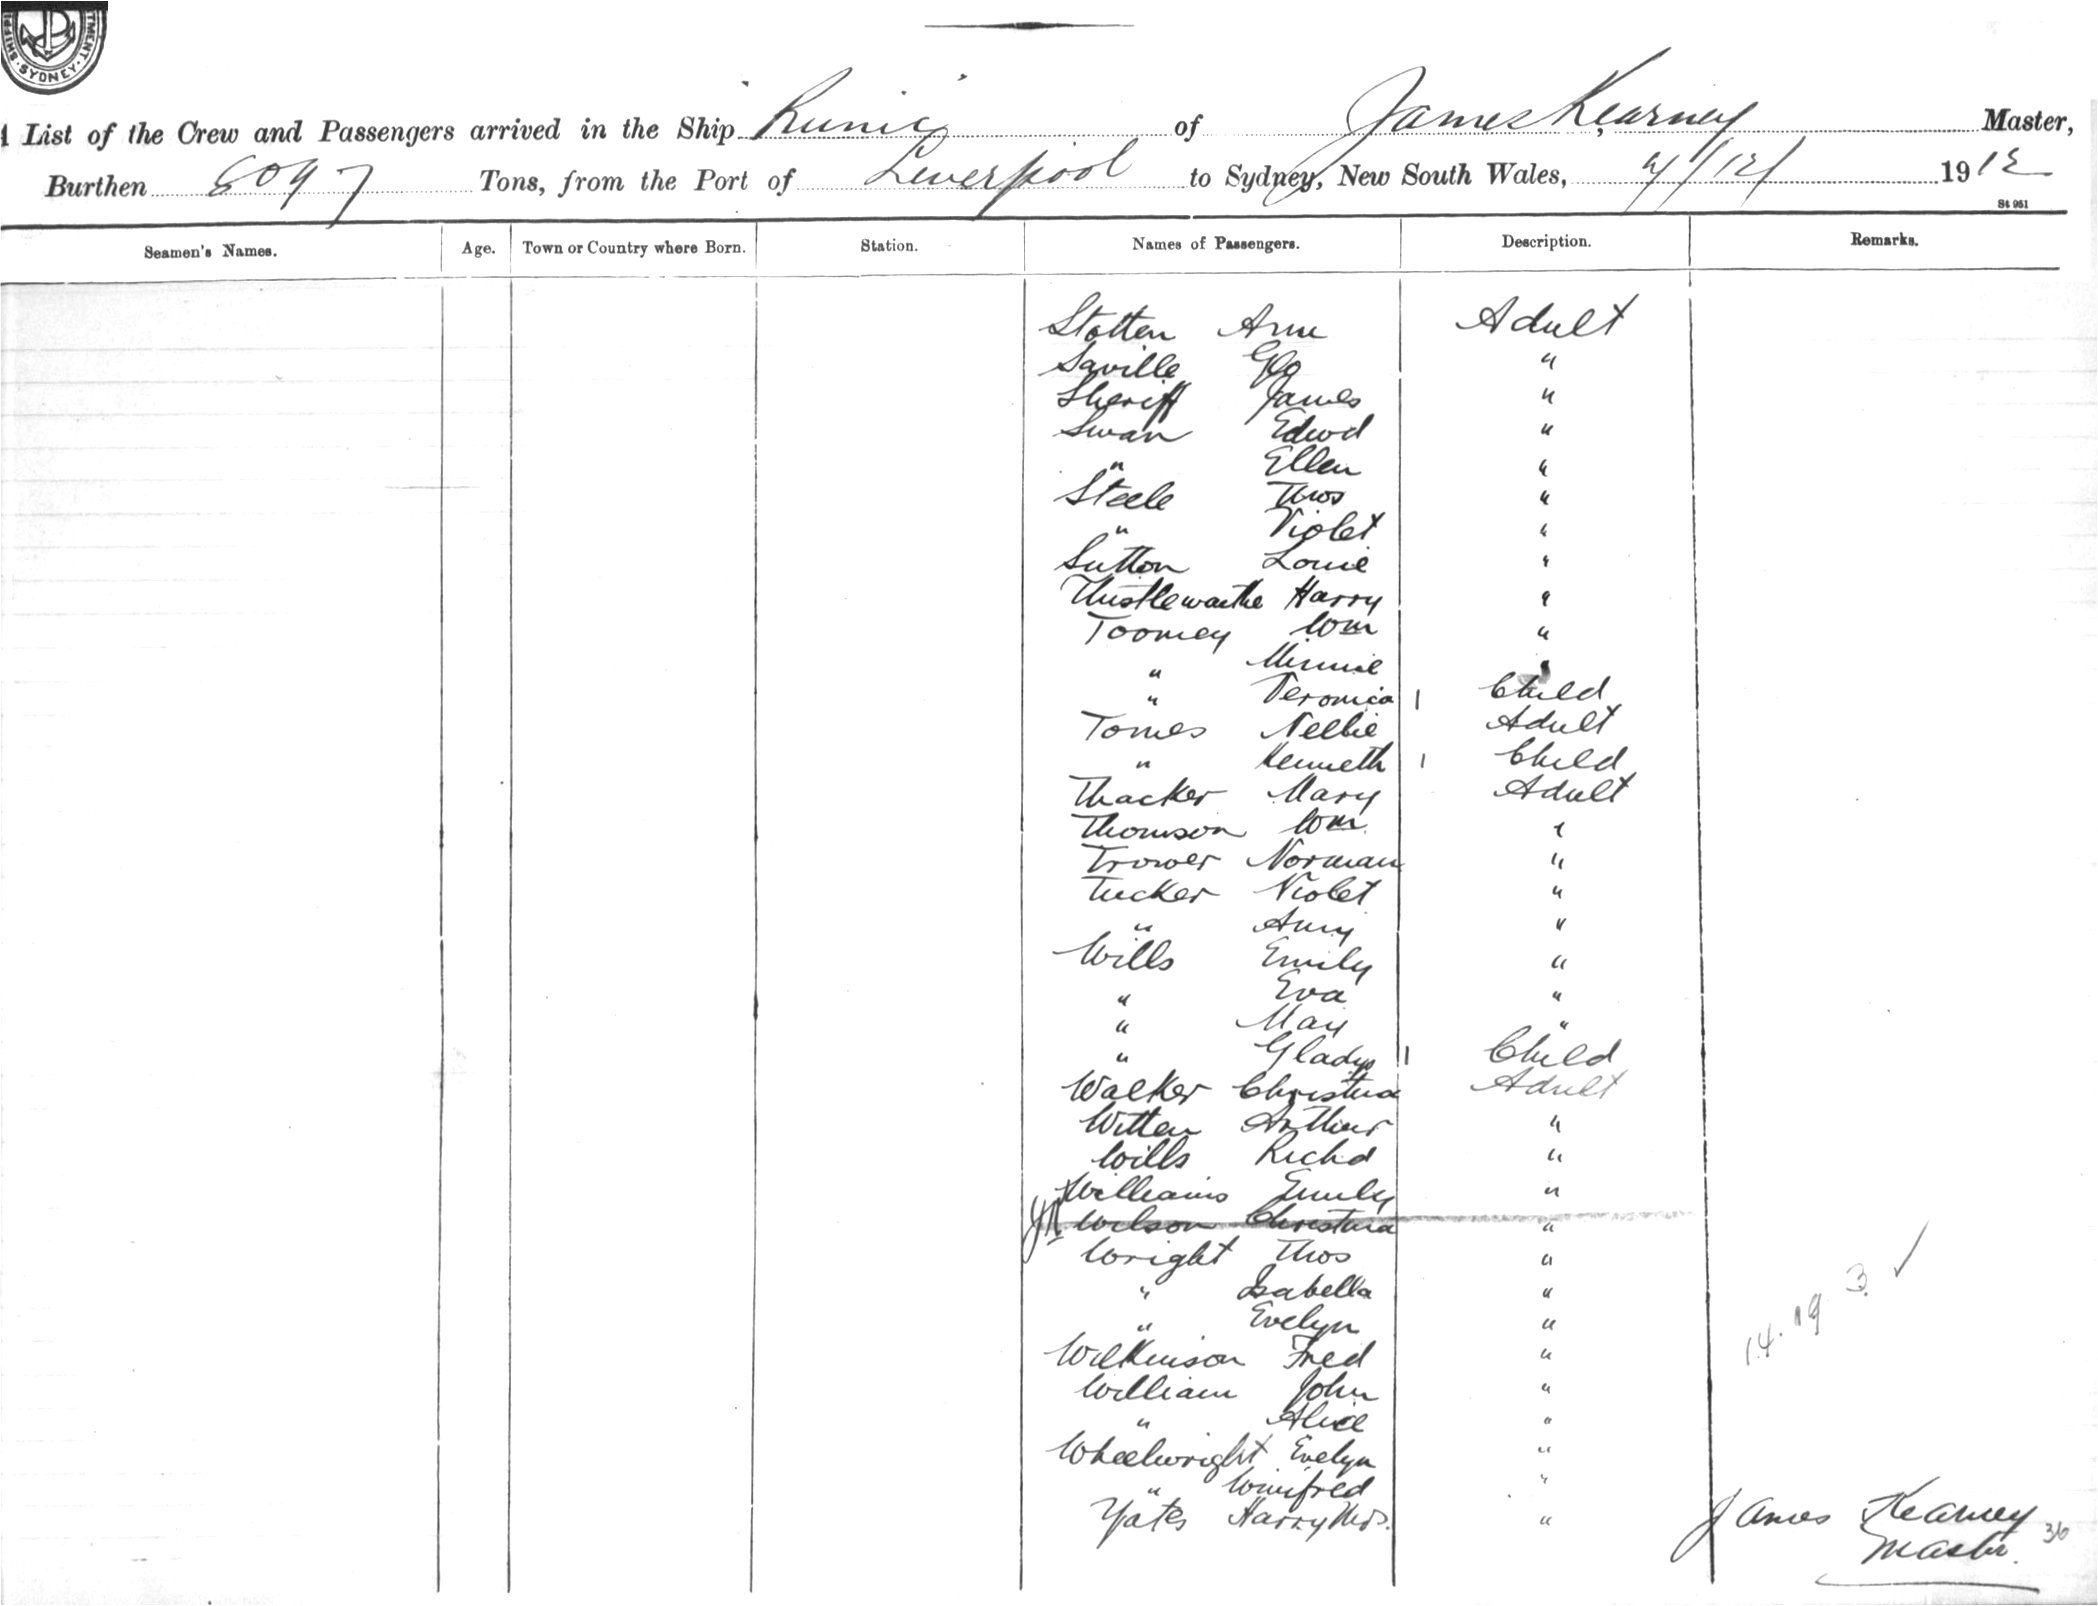 SHIPPI
SYDNEY
TMENT
List of the Crew and Passengers arrived in the Ship Runic of James Kearney, Master,
Burthen 8097 Tons, from the Port of Liverpool to Sydney, New South Wales, 1912
St 951
Seamen's Names. Age. Town or Country where Born. Station. Names of Passengers. Description. Remarks.
Stotten Ann Adult
Saville Geo "
Sheriff James "
Swan Edwd "
" Ellen "
Steele Thos "
" Violet "
Sutton Louie "
Thistlewaithe Harry "
Toomey Wm "
" Minnie "
" Veronica 1 Child
Tomes Nellie Adult
" Kenneth 1 Child
Thacker Mary Adult
Thomson Wm "
Trower Norman "
Tucker Violet "
" Amy "
Wills Emily "
" Eva "
" May "
" Gladys 1 Child
Walker Christina Adult
Witten Arthur "
Wills Richd "
Williams Emily "
Wilson Christina "
Wright Thos "
" Isabella "
" Evelyn "
Wilkinson Fred "
William John "
" Alice "
Wheelwright Evelyn "
" Winifred "
Yates Harry Mrs. "
14. 19 3. ✓
James Kearney
Master.
36